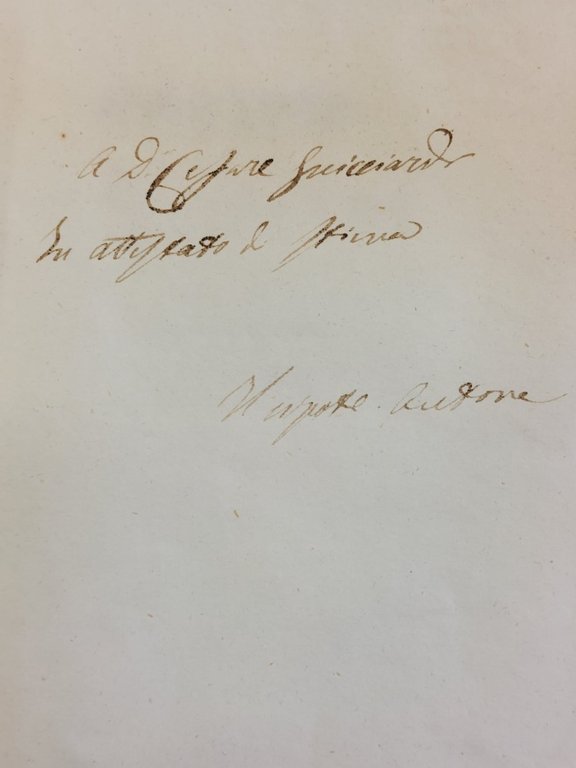 A D. Cesare Guicciardi
In attestato di stima
Il nipote Autore